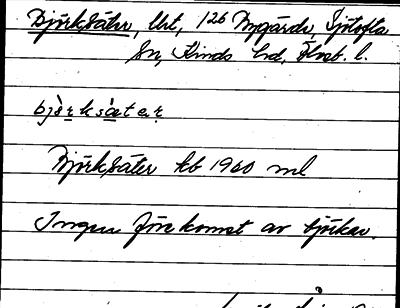 Björksäter, Urt, 126 Nygärde, Sjötofta
Sn, Kinds hd, Älvsb. l.
bjö̀r̥ksæ̀tar̥
Björksäter kb 1960 ml
Ingen förekomst av björkar.